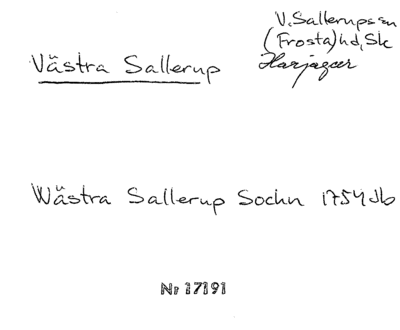 V. Sallerups sn
(Frosta) hd, Sk
Harjager
Västra Sallerup
Wästra Sallerup Sochn 1754 Jb
Nr 17191